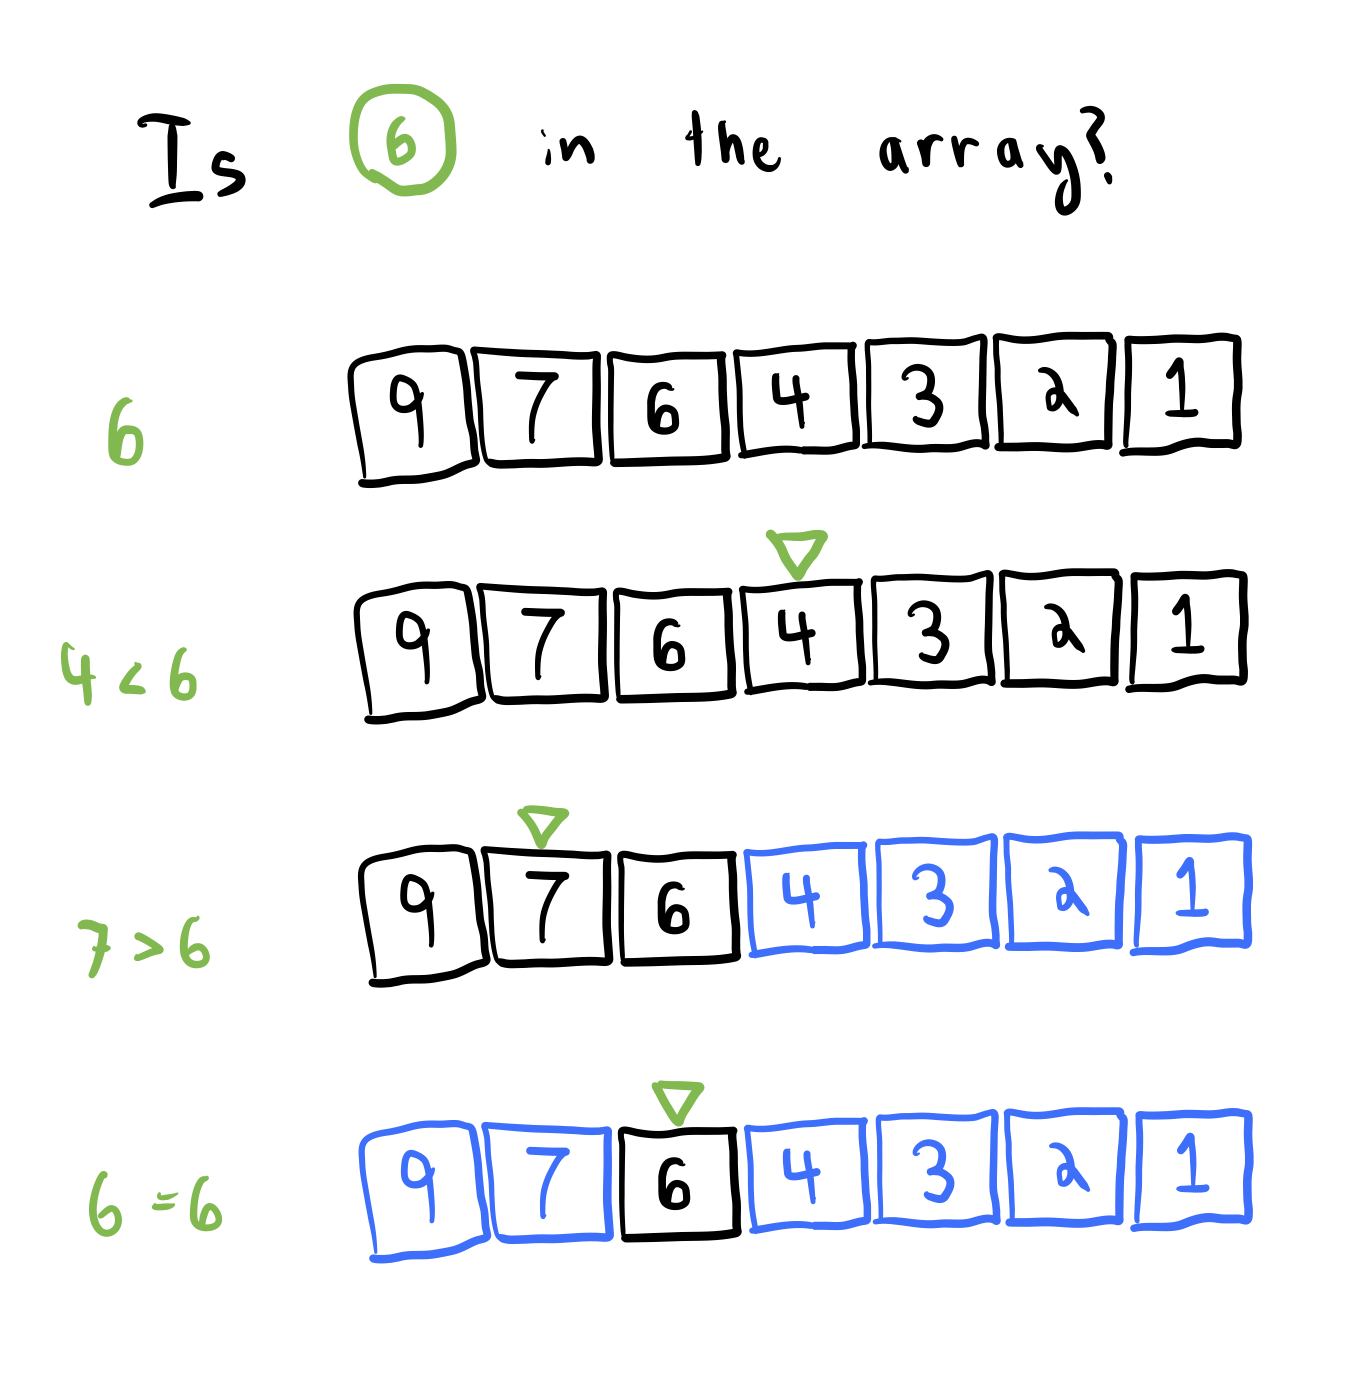 Is 6 in the array?
6 9 7 6 4 3 2 1
4 < 6 9 7 6 4 3 2 1
7 > 6 9 7 6 4 3 2 1
6 = 6 9 7 6 4 3 2 1